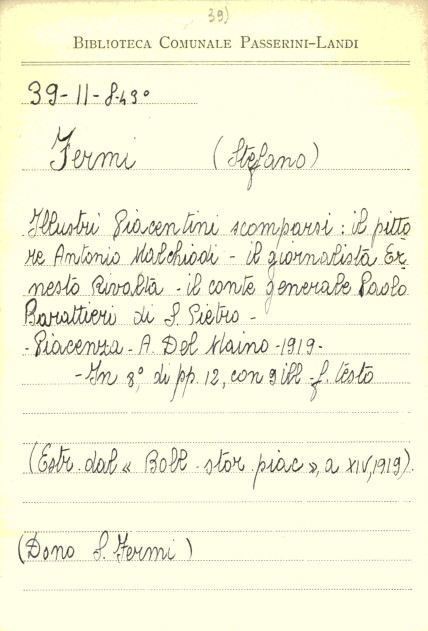 39)
BIBLIOTECA COMUNALE PASSERINI-LANDI
39-11-8.43°
Fermi (Stefano)
Illustri Piacentini scomparsi: il pitto
re Antonio Malchiodi - il giornalista Er
nesto Rivalta - il conte generale Paolo
Barattieri di S. Pietro -
- Piacenza - A. Del Maino - 1919 -
- In 8°, di pp. 12, con 9 ill. f. testo
(Estr. dal « Boll. stor. piac », a XIV, 1919).
(Dono S. Fermi)